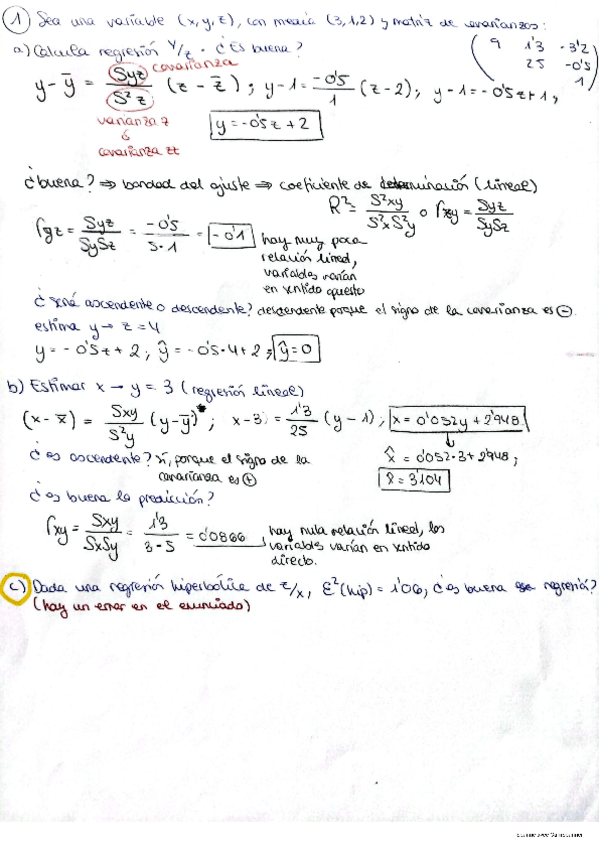 ① Sea una variable (x,y,z), con media (3,1,2) y matriz de covarianzas:
( 9 1'3 -3'2
25 -0'5
1 )
a) Calcula regresión Y/z. ¿Es buena?
covarianza
y - ȳ = Syz/S²z (z - z̄) ; y-1 = -0'5/1 (z-2) ; y-1 = -0'5z+1 ;
varianza z
ó
covarianza zz
y = -0'5z + 2
¿buena? ⇒ bondad del ajuste ⇒ coeficiente de determinación (lineal)
R² = S²xy/S²x S²y o rxy = Syz/SySz
ryz = Syz/SySz = -0'5/5·1 = -0'1
hay muy poca
relación lineal,
variables varían
en sentido opuesto
¿será ascendente o descendente? descendente porque el signo de la covarianza es ⊖.
estima y → z = 4
y = -0'5z + 2 ; ŷ = -0'5·4+2 ; ŷ = 0
b) Estimar x → y = 3 (regresión lineal)
(x - x̄) = Sxy/S²y (y - ȳ) ; x-3 = 1'3/25 (y-1) ; x = 0'052y + 2'948
¿es ascendente? sí, porque el signo de la
covarianza es ⊕
x̂ = 0'052·3 + 2'948 ;
x̂ = 3'104
¿es buena la predicción?
rxy = Sxy/SxSy = 1'3/3·5 = 0'0866
hay nula relación lineal, las
variables varían en sentido
directo.
c) Dada una regresión hiperbólica de z/x, ε²(hip) = 1'06, ¿es buena regresión?
(hay un error en el enunciado)